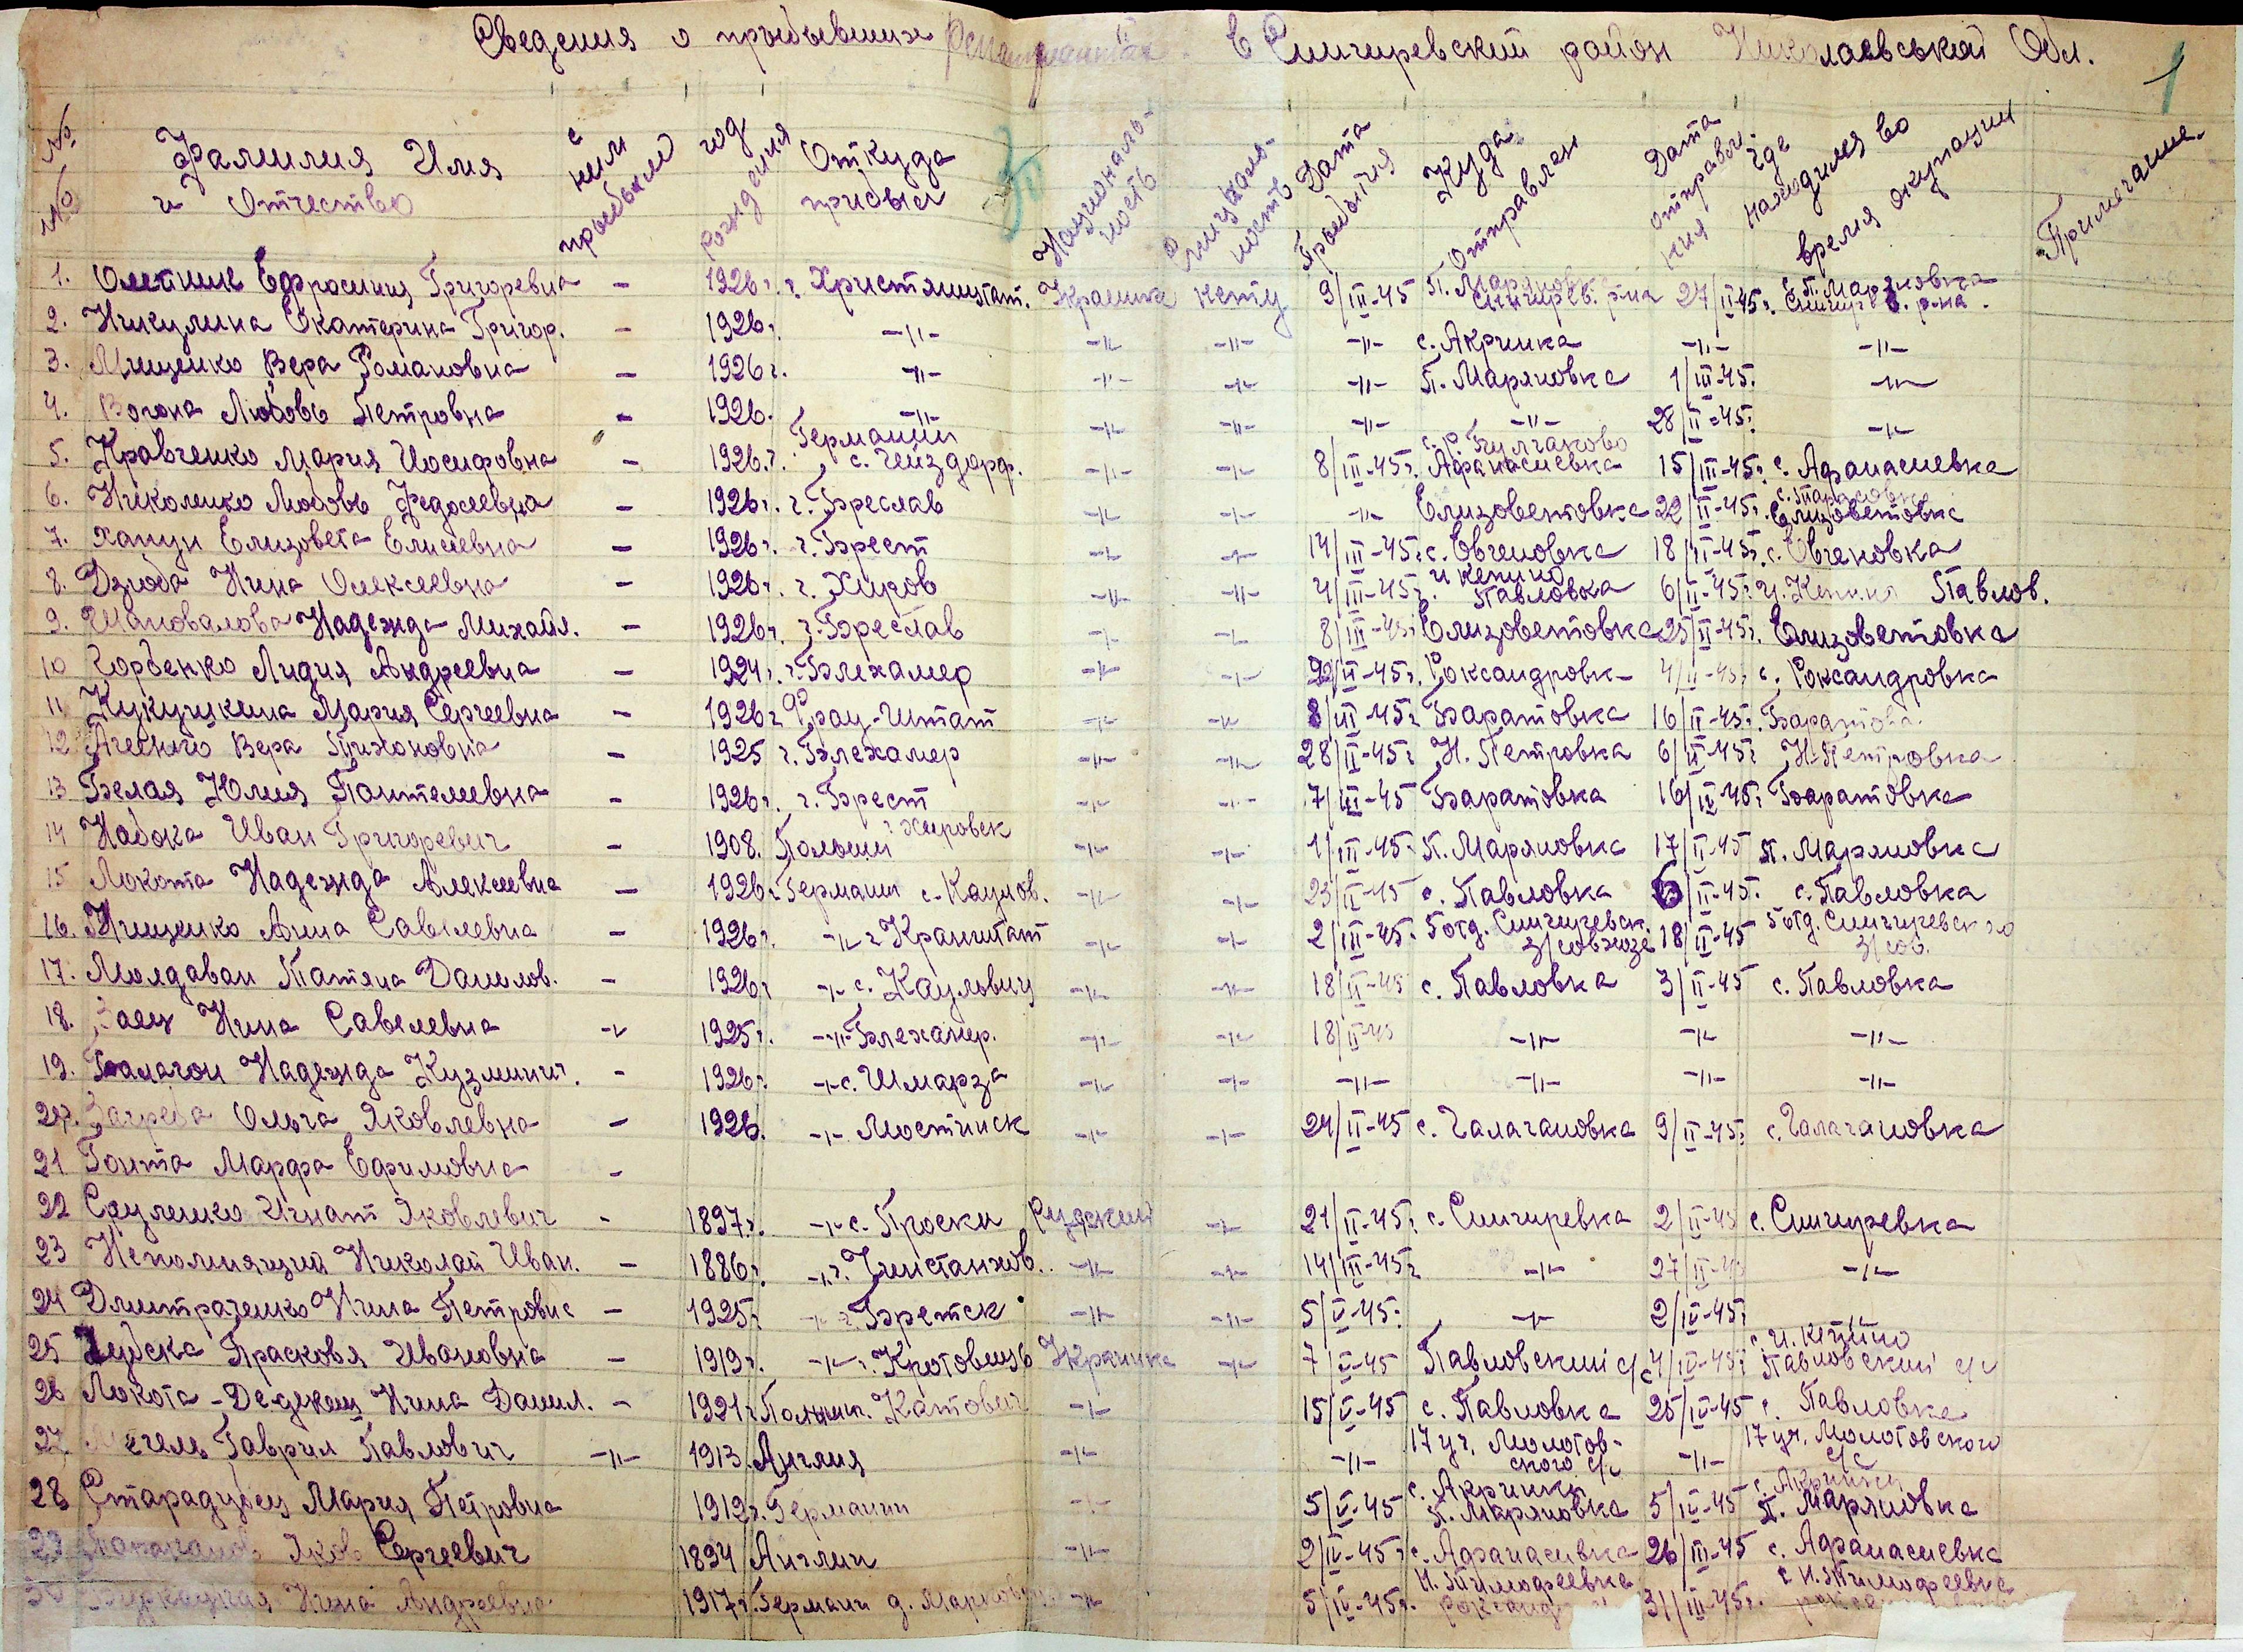 Сведения о прыбывших Репатриантах в Снигиревский район Николаевськой Обл.
1
№ № Фамилия Имя и Отчество с ним прыбыли год рождения Откуда прибыл Националь-ность Дата Прыбытия Куда Отправлен Дата отправле-ния где находился во время окупации Примечание.
1. Олейник Ефросиния Григоревна - 1926г. г. Христянштат. Украинка нету 9/III-45 П. Маряновка Снигирев. р-на 27/II-45г. с. П. Маряновка Снигирев. р-на.
2. Никулина Екатерина Григор. - 1926г. -"- -"- -"- -"- с. Акринка -"- -"-
3. Мищенко Вера Романовна - 1926г. -"- -"- -"- -"- П. Маряновка 1/III-45. -"-
4. Ворона Любовь Петровна - 1926. -"- -"- -"- -"- -"- 28/II-45г. -"-
5. Кравченко Мария Иосифовна - 1926.г. Германии с. Нейздорф. -"- -"- 8/III-45г. Афанасиевка 15/III-45г. с. Афанасиевка
6. Николенко Любовь Федосеевна - 1926г. г. Бреслав -"- -"- -"- Елизоветовка 22/II-45г. с. Тарасовка Елизоветовка
7. Елизовета Елисеевна - 1926г. г. Брест -"- -"- 14/III-45г. с. Евгеновка 18/II-45г. с. Евгеновка
8. Дзюба Нина Олексеевна - 1926г. г. Хиров -"- -"- 4/III-45г. Павловка 6/II-45г. Павлов.
9. Шаповалова Надежда Михайл. - 1926г. г. Бреслав -"- -"- 8/III-45г. Елизоветовка 25/II-45г. Елизоветовка
10 Горбенко Лидия Андреевна - 1924г. г. Блехамер -"- -"- 22/II-45г. Роксандровк- 4/II-45г. с. Роксандровка
11 Кукушкина Мария Сергеевна - 1926г. Фрау-Штат -"- -"- 8/III-45г. Баратовка 16/II-45г. Баратовка
12 Вера Тихоновна - 1925 г. Блехамер -"- -"- 28/II-45г. Н. Петровка 6/II-45г. Н-Петровка
13 Белая Юлия Пантелеевна - 1926г. г. Брест -"- -"- 7/III-45 Баратовка 16/II-45г. Баратовка
14 Набока Иван Григоревич - 1908. Польши -"- -"- 1/III-45. П. Маряновка 17/II-45 П. Маряновка
15 Локота Надежда Алексеевна - 1926г. Германии с. Каулов. -"- -"- 23/II-45 с. Павловка 6/II-45г. с. Павловка
16. Мищенко Анна Савелевна - 1926г. -"- г. Кранштат -"- -"- 2/III-45. 5 отд. Снигиревск. з/совхозе 18/II-45 5 отд. Снигиревского з/сов.
17. Молдаван Татяна Данилов. - 1926г -"- с. Каулович -"- -"- 18/II-45 с. Павловка 3/II-45 с. Павловка
18. Заец Нина Савелевна -"- 1925г. -"- Блехамер. -"- -"- 18/II-45 -"- -"- -"-
19. Балагон Надежда Кузминич. - 1926г. -"- с. Шмарза -"- -"- -"- -"- -"- -"-
20. Загреба Ольга Яковлевна - 1926. -"- Мостинск -"- -"- 24/II-45 с. Галагановка 9/II-45г. с. Галагановка
21 Гонта Марфа Ефимовна -
22 Игнат Яковлевич - 1897г. -"- с. Проски Руский -"- 21/II-45г. с. Снигиревка 2/II-45 с. Снигиревка
23 Непомнящий Николай Иван. - 1886г. -"- г. -"- -"- 14/III-45г -"- 27/II-45 -"-
24 Дмитраченко Нина Петровна - 1925г. -"- г. Бретск -"- -"- 5/V-45г. -"- 2/IV-45г
25 Прасковя Ивановна - 1919г. -"- г. Кротовшзь Украинка -"- 7/V-45 Павловский с/с 4/IV-45г. Павловский с/с
26 Локота-Дедекец Нина Данил. - 1921г. Польши г. Катович -"- 15/V-45 с. Павловка 25/IV-45 с. Павловка
27 Гаврил Павлович -"- 1913. Англия -"- -"- 17 уч. Молотов-ского с/с -"- 17 уч. Молотовского с/с
28 Старадубец Мария Петровна 1912г. Германии -"- 5/V-45 с. Акринки П. Маряновка 5/IV-45 с. Акринки П. Маряновка
29 Яков Сергеевич 1894 Англии -"- 2/IV-45г. с. Афанасиевка 26/III-45 с. Афанасиевка
30 Нина Андреевна 1917г. Германи д. -"- 5/IV-45г. Н. Тимофеевка 31/III-45г. с. Н. Тимофеевка